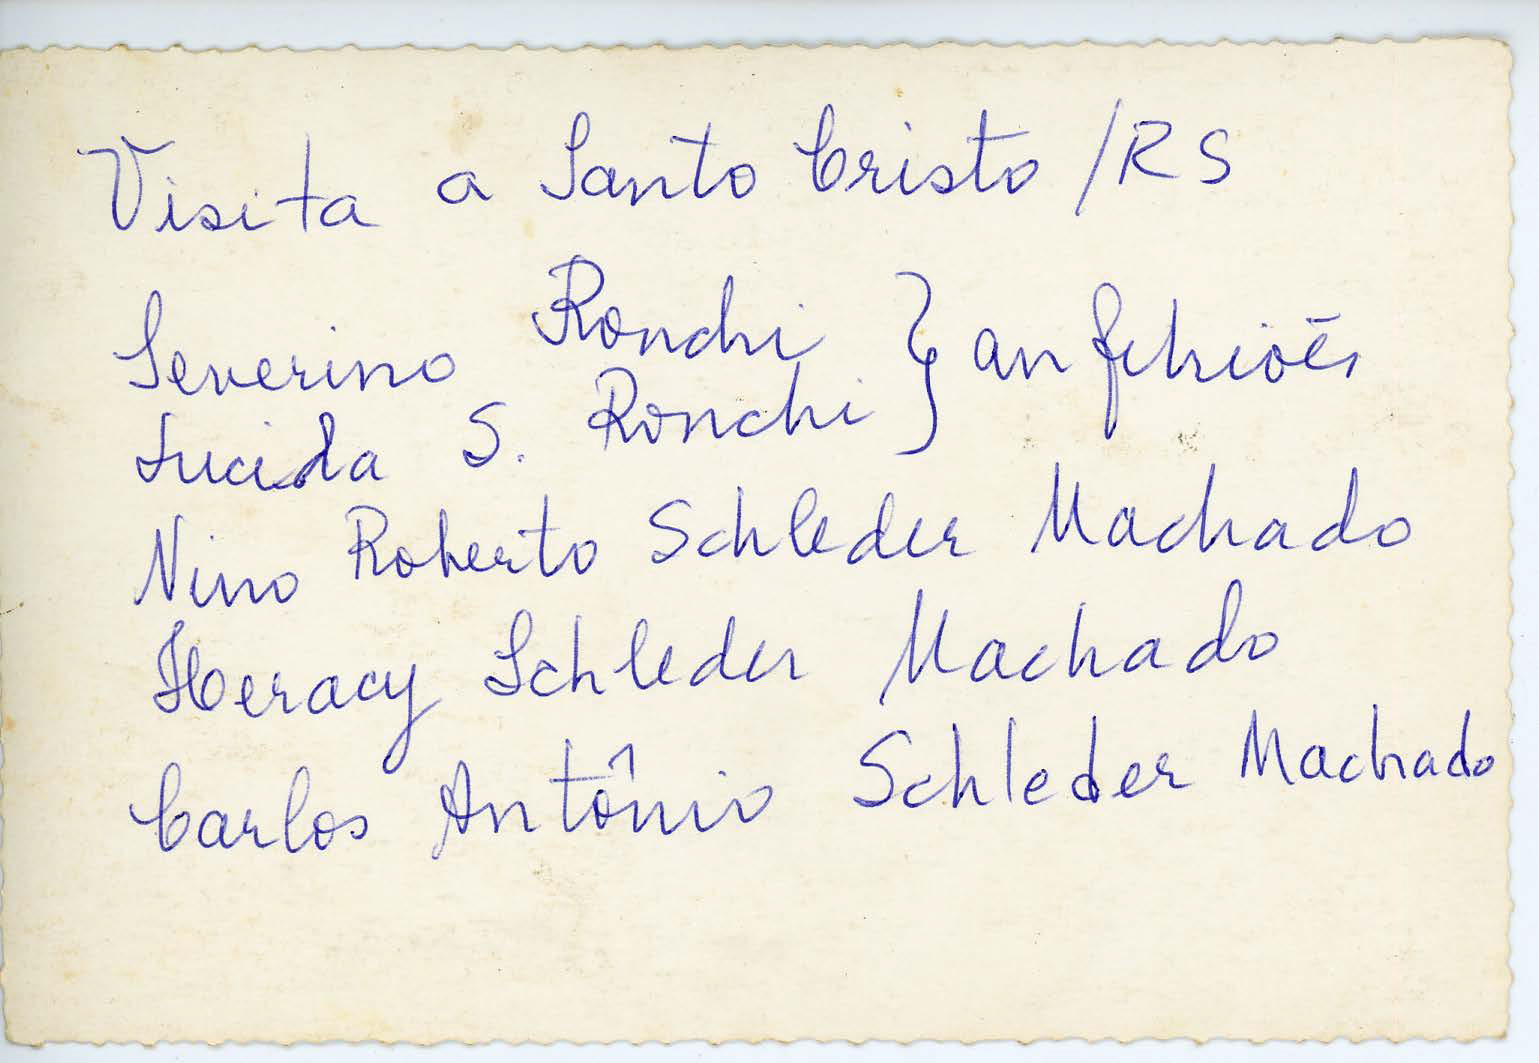 Visita a Santo Cristo /RS
Severino Ronchi } anfitriões
Lucida S. Ronchi
Nino Roberto Schleder Machado
Heracy Schleder Machado
Carlos Antônio Schleder Machado